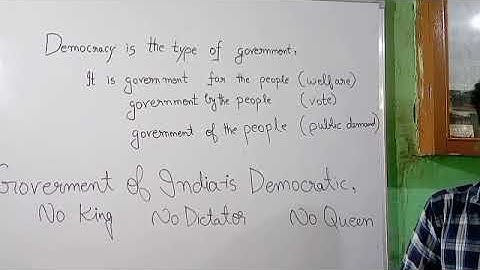 Democracy is the type of government.
It is government for the people (welfare)
government by the people (vote)
government of the people (public demand)
Goverment of India is Democratic.
No King No Dictator No Queen